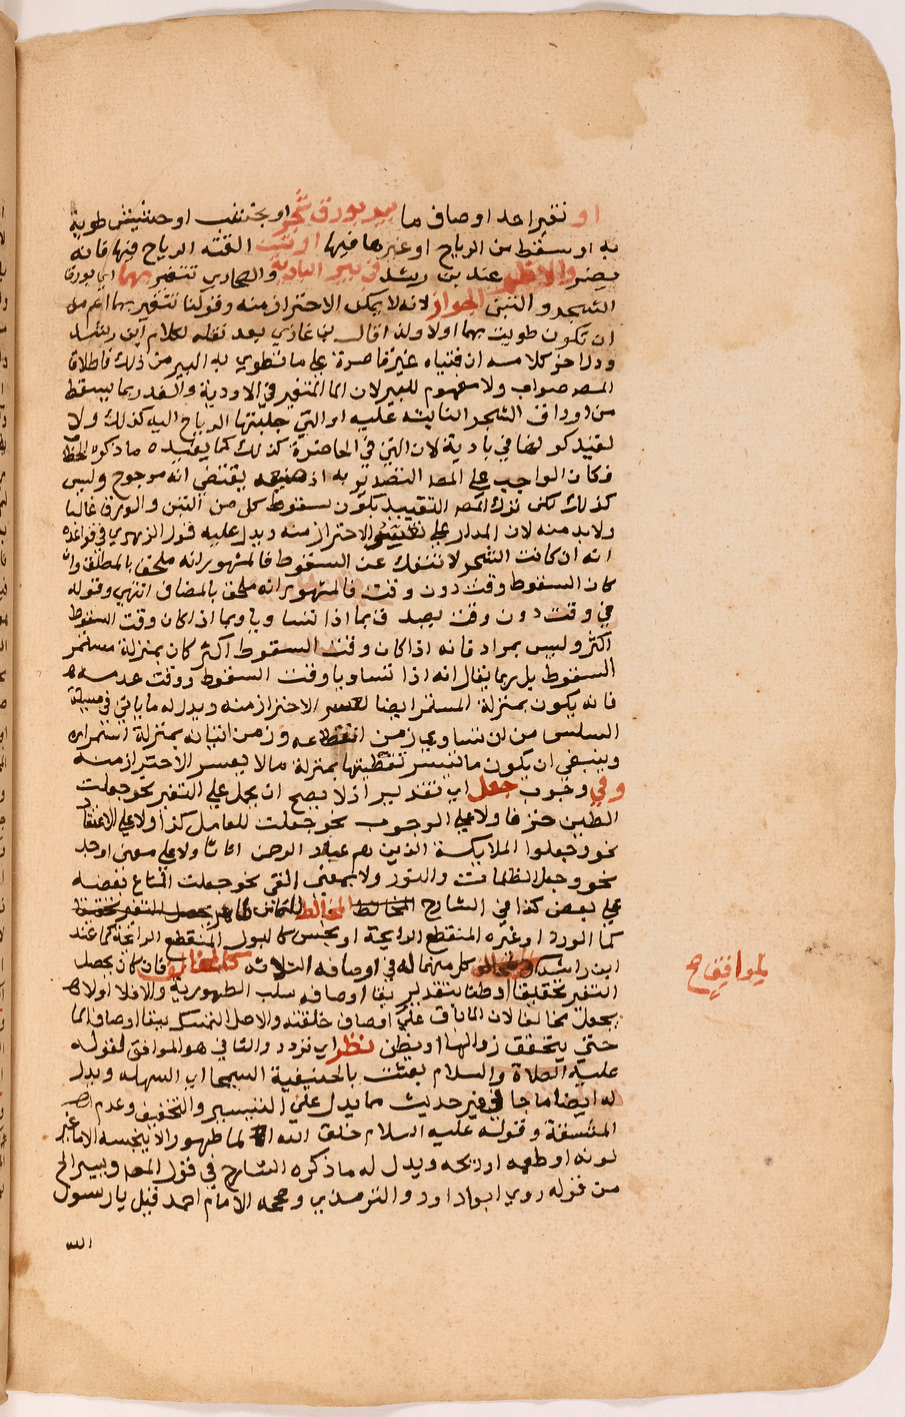 او تغير احد اوصاف ما بير بورق شجر او بخشب او حشيش طويت
به او سقط من الرياح او غيرها فيها او تبن القته الرياح فيها فانه
يضر والاظهر عند بن رشد في بير البادية والصحاري تتغير بهما اي بورق
الشجر والتبن الجواز لانه لا يمكن الاحتراز منه وقولنا تتغير بهما اعم من
ان تكون طويت بهما اولا ولذا قال بن غازي بعد نقله لكلام ابن رشد
ودل اخر كلامه ان فتياه غير قاصرة على ما تنطوي به البير من ذلك فاطلاق
المص صواب ولا مفهوم للبير لان الما المتغير في الاودية والغدر بما يسقط
من اوراق الشجر النابته عليه او التي جلبتها الرياح اليه كذلك ولا
لتقييد كونها في بادية لان التي في الحاضرة كذلك كما يفيده ما ذكره
فكان الواجب على المص التصدير به اذ صنيعه يقتضي انه مرجوح وليس
كذلك كترك المص التقييد بكون سقوط كل من التبن والورق غالبا
ولا بد منه لان المدار على الاحتراز منه ويدل عليه قول الزهري في قواعده
انه ان كانت الشجر لا تنفك عن السقوط فالمشهور انه ملحق بالمطلق وان
كان السقوط وقت دون وقت فالمشهور انه ملحق بالمضاف انتهى وقوله
في وقت دون وقت يصدق بما اذا تساويا وبما اذا كان وقت السقوط
اكثر وليس بمراد فانه اذا كان وقت السقوط اكثر كان بمنزلة مستمر
السقوط بل ربما يقال انه اذا تساويا وقت السقوط ووقت عدمه
فانه يكون بمنزلة المستمر ايضا لعسر الاحتراز منه ويدل له ما ياتي في مسيلة
السلس من ان تساوي زمن انقطاعه وزمن اتيانه بمنزلة استمراره
وينبغي ان يكون ما تيسر تغطيتها بمنزلة ما لا يعسر الاحتراز منه
وفي وجوب جعل اي تقدير اذ لا يصح ان يحمل على التغير نحو جعلت
الطين خزفا ولا على الوجوب نحو جعلت للعامل كذا ولا على الاعتقاد
نحو وجعلوا الملايكة الذين هم عباد الرحمن اناثا ولا على معنى اوجد
نحو وجعل الظلمات والنور ولا بمعنى القى نحو جعلت المتاع بعضه
على بعض كذا في الشارح المخالط المخالط للما
كما الورد او غيره المنقطع الرايحة او نجس كالبول المنقطع الرايحة كما عند
ابن راشد كل منهما له في اوصافه الثلاثة كالمخالف فان كان يحصل
التغير تحقيقا او ظنا بتقدير بقا اوصافه سلب الطهورية والا فلا اولا
يجعل مخالفا لان الما باق على اوصاف خلقته والاصل التمسك ببقا اوصاف الما
حتى يتحقق زوالها او يظن نظر اي تردد والثاني هو الموافق لقوله
عليه الصلاة والسلام بعثت بالحنيفية السمحا اي السهله ويدل
له ايضا ما جا في غير حديث مما يدل على التيسير والتخفيف وعدم
المشقة وقوله عليه السلام خلق الله الما طهورا لا ينجسه الا ما غير
لونه او طعمه او ريحه ويدل له ما ذكره الشارح في قول المص وبير الخ
من قوله روي ابو داود والترمذي وصححه الامام احمد قيل يا رسول
الله
الموافق صح